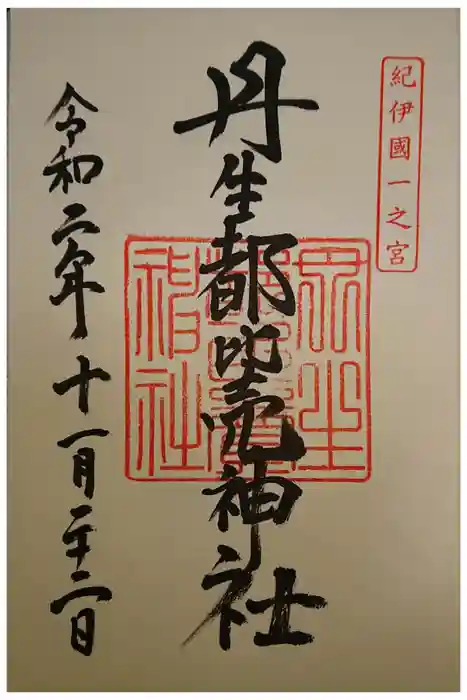 紀伊國一之宮
丹生都比売神社
丹生
都比賣
神社
令和二年十一月二十二日